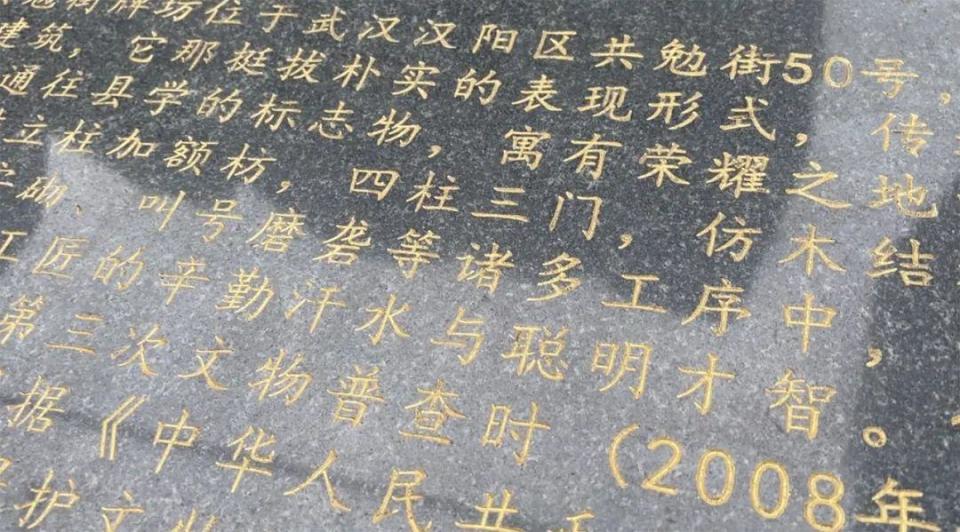 牌坊位于武汉汉阳区共勉街50号，
建筑，它那挺拔朴实的表现形式，传
通往县学的标志物，寓有荣耀之地
立柱加额枋，四柱三门，仿木结
砌、叫号磨砻等诸多工序中，
工匠的辛勤汗水与聪明才智。
第三次文物普查时（2008年
据《中华人民共
护文物